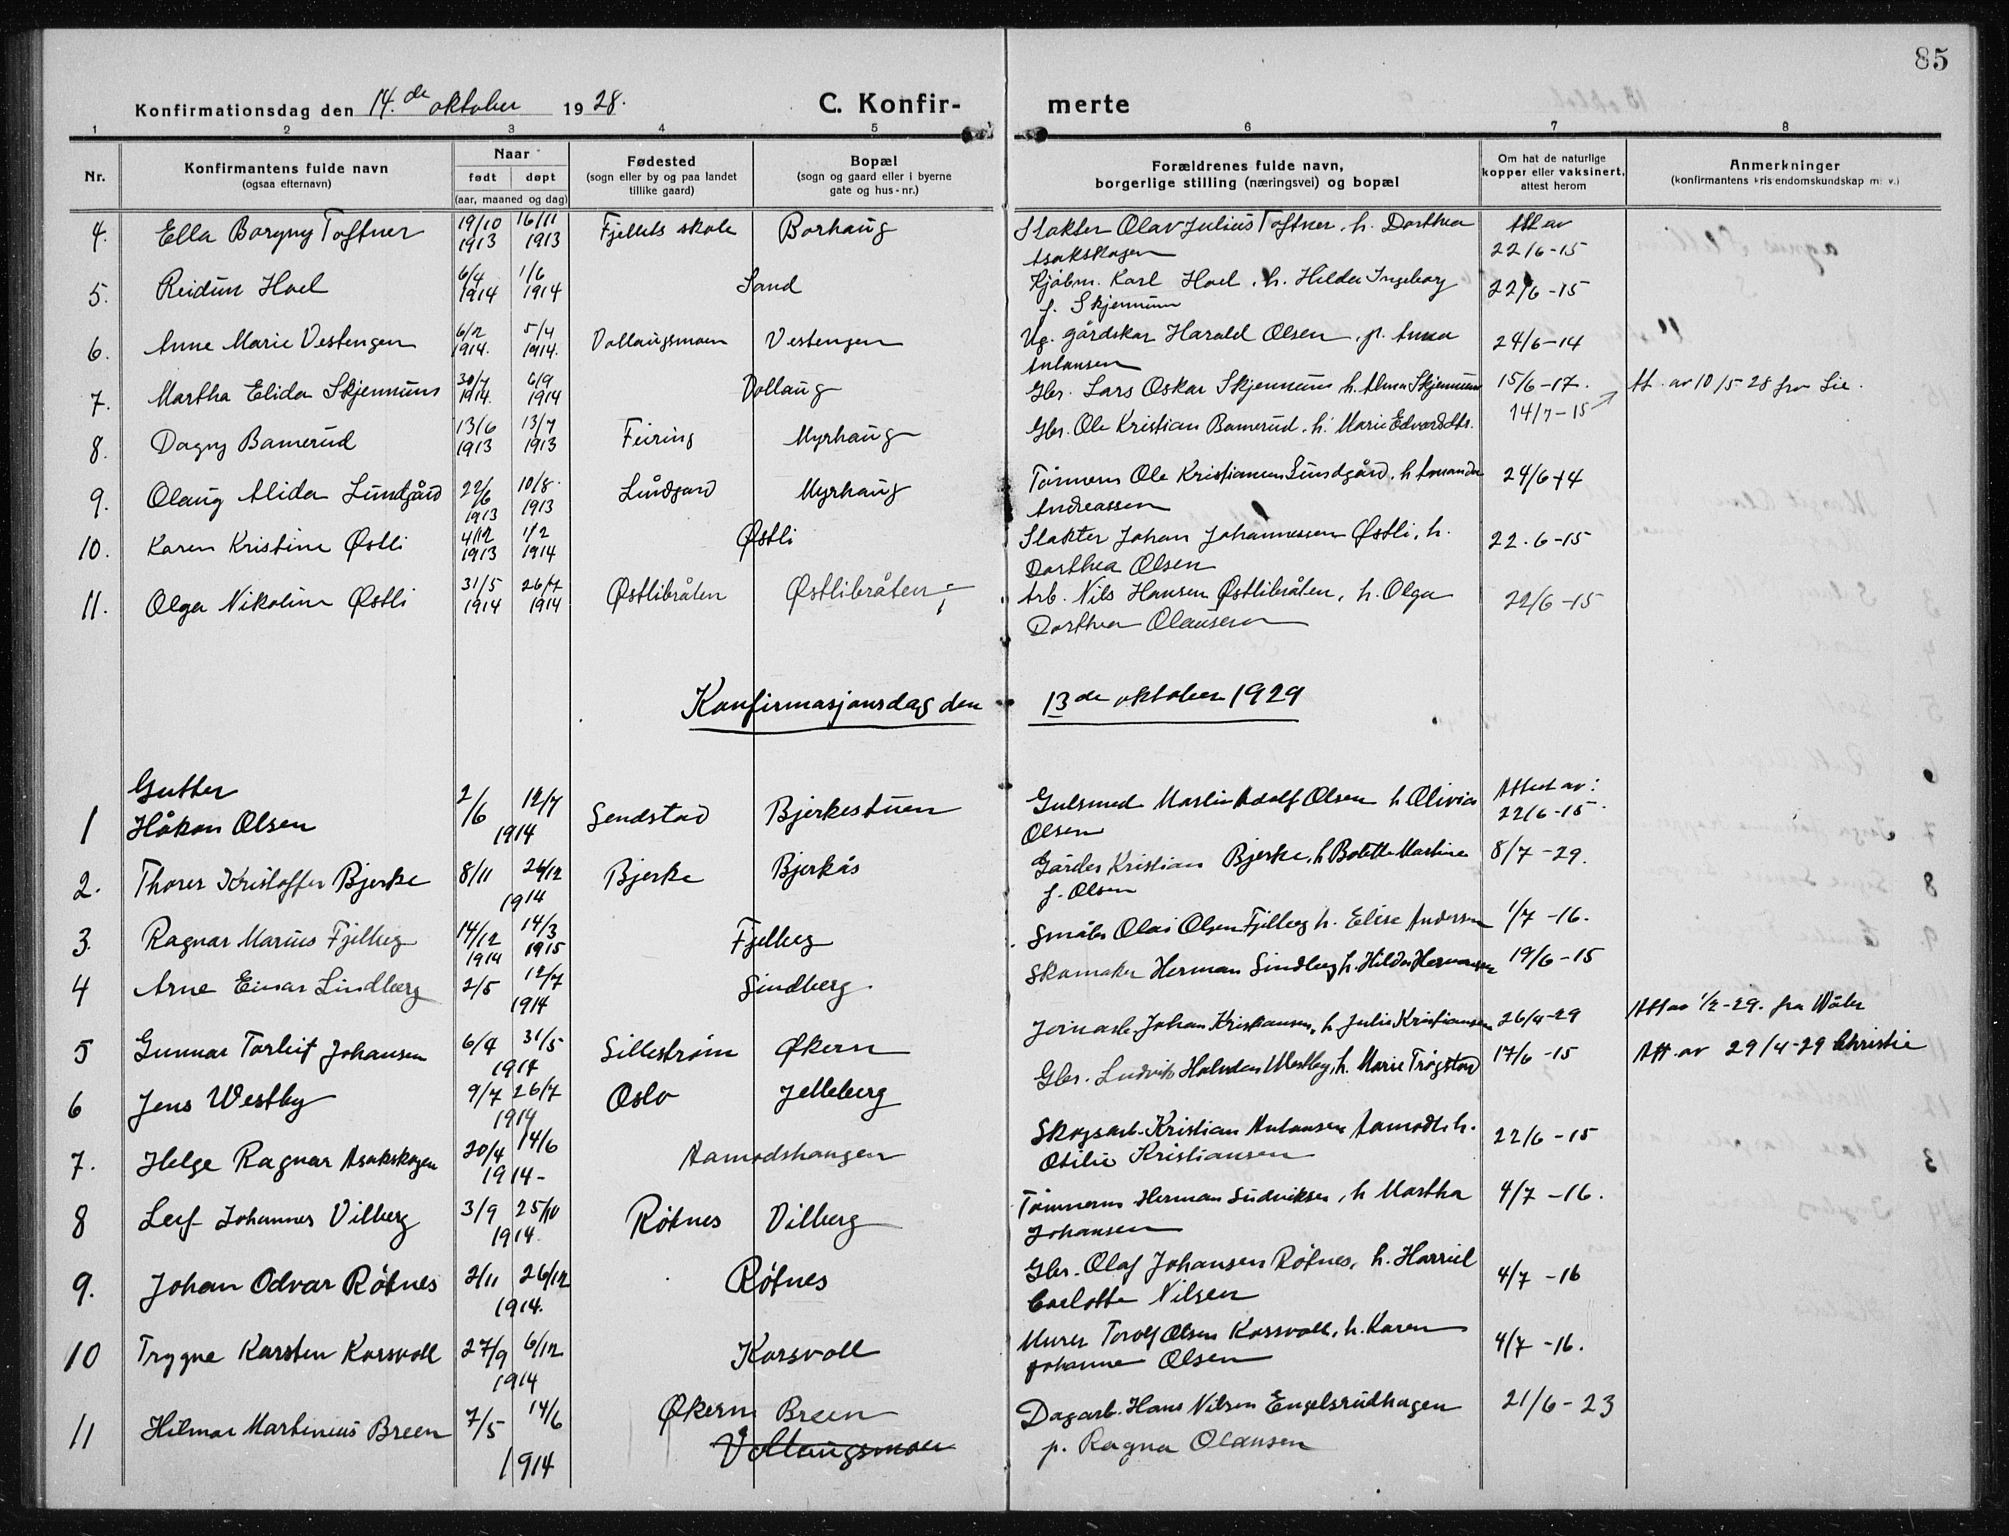 85
Konfirmationsdag den 14.de oktober 1928.
C. Konfir- merte
1 2 3 4 5 6 7 8
Nr.
Konfirmantens fulde navn
(ogsaa efternavn)
Naar
født døpt
(aar, maaned og dag)
Fødested
(sogn eller by og paa landet
tillike gaard)
Bopæl
(sogn og gaard eller i byerne
gate og hus-nr.)
Forældrenes fulde navn,
borgerlige stilling (næringsvei) og bopæl
Om hat de naturlige
kopper eller vaksinert,
attest herom
Anmerkninger
(konfirmantens kristendomskundskap m. v.)
4. Ella Borgny Toftner 19/10 1913 16/11 1913 Fjellets skole Borhaug Slakter Olav Julius Toftner, h. Dorthea Att av
Asakskogen 22/6-15
5. Reidun Hoel 6/4 1914 1/6 1914 Sand Kjøbm. Karl Hoel, h. Hilda Ingeborg 22/6-15
f. Skjennum
6. Anne Marie Vestengen 6/2 1914. 5/4 1914. Vollaugsmoen Vestengen Ug. gårdskar Harald Olsen, p. Anna 24/6-14
Antonsen
7. Martha Elida Skjennum 30/7 1914. 6/9 1914 Vollaug Gbr. Lars Oskar Skjennum h. Alma Skjennum 15/6-17. Att. av 10/5 28 fra Lie.
8. Dagny Bamerud 13/6 1913 13/7 1913 Feiring Myrhaug Gbr. Ole Kristian Bamerud, h. Marie Edvardsdtr. 14/7-15
9. Olaug Alida Lundgård 22/6 1913 10/8 1913 Lundgård Myrhaug Tømmerm Ole Kristiansen Lundgård, h Amanda 24/6-14
Andreassen
10. Karen Kristine Østli 4/12 1913 1/2 1914 Østli Slakter Johan Johannessen Østli, h. 22.6-15
Dorthea Olsen
11. Olga Nikoline Østli 31/5 1914 26/7 1914 Østlibråten Østlibråten Arb. Nils Hansen Østlibråten, h. Olga 22/6-15
Dorthea Olausen
Konfirmasjonsdag den 13de oktober 1929
Gutter
1 Håkon Olsen 2/6 12/7 1914 Sendstad Bjerkestuen Gulsmed Martin Adolf Olsen h Olivia Attest av:
Olsen 22/6-15
2. Thorer Kristoffer Bjerke 8/11 26/12 1914 Bjerke Bjerkås Gårdbr Kristian Bjerke, h Bolette Martine 8/7-29.
f. Olsen
3. Ragnar Marius Fjelberg 14/12 1914 14/3 1915 Fjelberg Småbr Olai Olsen Fjelberg h. Elise Andersen 1/7-16.
4 Arne Einar Lindberg 2/5 12/7 1914 Lindberg Skomaker Herman Lindberg h. Hilda Hermansen 19/6-15
5 Gunnar Torleif Johansen 6/4 31/5 1914 Lillestrøm Økern Jernarb. Johan Kristiansen, h Julie Kristiansen 26/4-29 Att av 1/2-29. fra Waler
6 Jens Westby 9/7 26/7 1914 Oslo Jelleberg Gbr. Ludvik Halvdan Westby, h. Marie Trøgstad 17/6-15 Att. av 29/4-29 Christie
7. Helge Ragnar Asakskogen 20/4 14/6 1914- Aamodshaugen Skogsarb. Kristian Antonsen Aamodt h. 22/6-15
Otilie Kristiansen
8 Leif Johannes Vilberg 3/9 25/10 1914. Røtnes Vilberg Tømmerm Herman Ludviksen, h Martha 4/7-16.
Johansen
9. Johan Odvar Røtnes 2/11 26/12 1914. Røtnes Gbr. Olaf Johansen Røtnes, h. Harriet 4/7-16
Carlotte Nilsen
10 Trygve Karsten Korsvoll 27/9 6/12 1914 Korsvoll Murer Torolf Olsen Korsvoll, h. Karen 4/7-16.
Johanne Olsen
11 Hilmar Martinius Breen 7/5 14/6 1914 Økern Breen Dagarb. Hans Nilsen Engelsrudhagen 21/6-23
Vollaugsmoen p. Ragna Olausen